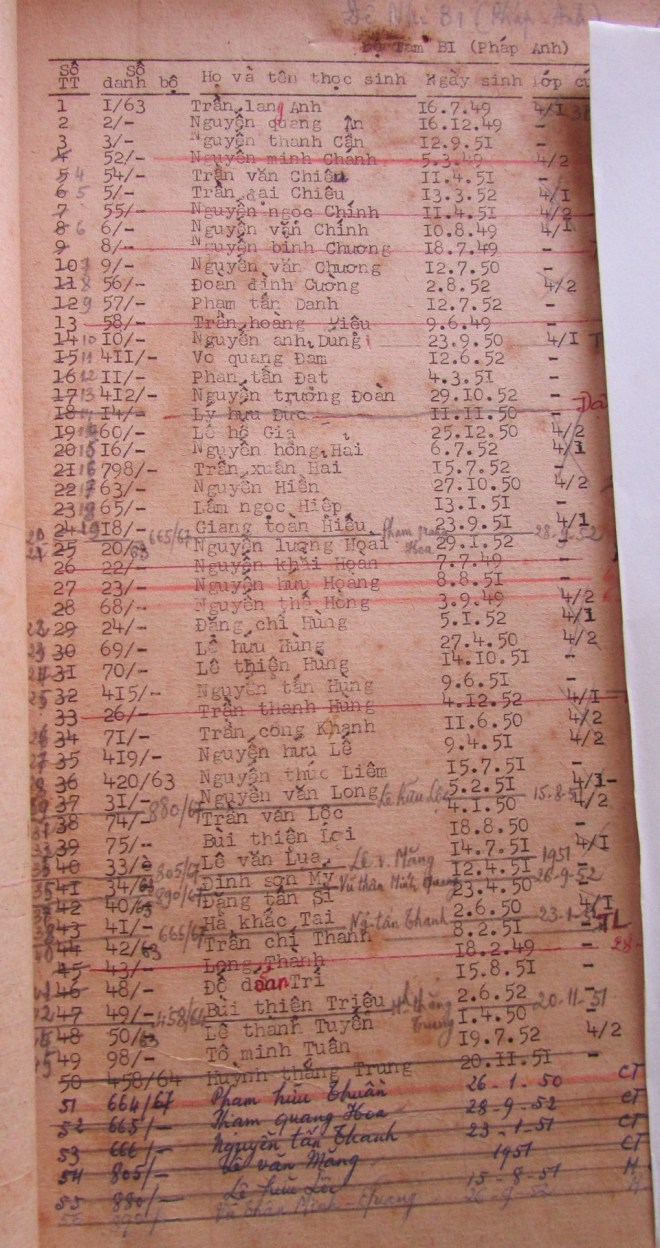 Đệ Nhị B1 (Pháp-Anh)
Đệ Tam BI (Pháp Anh)
Số TT Số danh bộ Họ và tên thọc sinh Ngày sinh lớp
1 I/63 Trần lan Anh I6.7.49 4/I
2 2/- Nguyễn quang Ân I6.I2.49 -
3 3/- Nguyễn thanh Cần I2.9.5I -
4 52/- Nguyễn minh Chánh 5.3.49 4/2
5 4 54/- Trần văn Chiêu II.4.5I -
6 5 5/- Trần đại Chiêu I3.3.52 4/I
7 55/- Nguyễn ngọc Chính II.4.5I 4/2
8 6 6/- Nguyễn văn Chính I0.8.49 4/I
9 8/- Nguyễn bỉnh Chương I8.7.49 -
10 7 9/- Nguyễn văn Chương I2.7.50 -
11 8 56/- Đoàn đình Cương 2.8.52 4/2
12 9 57/- Phạm tấn Danh I2.7.52 -
13 58/- Trần hoàng 9.6.49 -
14 10 I0/- Nguyễn anh Dung 23.9.50 4/I T
15 11 4II/- Vo quang Đam I2.6.52 -
16 12 II/- Phan tấn Đạt 4.3.5I -
17 13 4I2/- Nguyễn trường Đoàn 29.I0.52 -
18 I4/- Lý hưu Đức II.II.50 -
19 60/- Lê hồ Gia 25.I2.50 4/2
20 15 I6/- Nguyễn hồng Hải 6.7.52 4/1
21 16 798/- Trần xuân Hai I5.7.52 -
22 17 63/- Nguyễn Hiền 27.I0.50 4/2
23 18 65/- Lâm ngọc Hiệp I3.I.5I -
24 19 I8/- 665/67 Giang toàn Hiếu Pham quang Hoa 23.9.5I 4/1 28-9-52
20 21 25 20/63 Nguyễn lương Hoai 29.I.52 -
26 22/- Nguyễn khải Hoan 7.7.49 -
27 23/- Nguyễn hưu Hoàng 8.8.5I -
28 68/- Nguyễn thế Hồng 3.9.49 4/2
22 29 24/- Đặng chí Hùng 5.I.52 4/1
23 30 69/- Lê hưu Hùng 27.4.50 4/2
24 31 70/- Lê thiện Hùng I4.I0.5I -
25 32 4I5/- Nguyễn tấn Hùng 9.6.5I -
33 26/- Trần thanh Hùng 4.I2.52 4/I
26 34 7I/- Trần công Khanh II.6.50 4/2
27 35 4I9/- Nguyễn hưu Lê 9.4.5I 4/2
36 420/63 Nguyễn thúc Liêm I5.7.5I -
37 3I/- 880/67 Nguyễn văn Long Lê hữu Lộc 5.2.5I 4/1- 15-8-51
38 74/- Trần văn Lộc 4.I.50 4/2
33 39 75/- Bùi thiện Lợi I8.8.50 -
40 33/- 805/67 Lê văn Lua Lê v. Mãng I4.7.5I 4/I 1951
35 41 34/63 890/67 Đinh sơn Mỹ Vũ thân Minh Quang I2.4.5I - 26-9-52
42 40/63 Đặng tấn Sĩ 23.4.50 -
43 4I/- 666/67 Hà khắc Tai Ng. tấn Thanh 2.6.50 4/I 23-1-51 TL
44 42/63 Trần chí Thanh 8.2.5I - 28-
45 43/- Long Thành I8.2.49 -
46 48/- Đỗ doãn Trí I5.8.5I -
47 49/- 458/64 Bùi thiện Triệu H. thắng Trung 2.6.52 - 20-11-51
48 50/63 Lê thanh Tuyền I.4.50 -
49 98/- Tô minh Tuân I9.7.52 4/2
50 458/64 Huỳnh thắng Trung 20.II.5I -
51 664/67 Phạm hữu Thuần 26-1-50 CT
52 665/- Phạm quang Hoa 28-9-52 CT
53 666/- Nguyễn tấn Thanh 23-1-51 CT
54 805/- Lê văn Mãng 1951 CT
55 880/- Lê hữu Lộc 15-8-51 H
56 890/ Vũ thân Minh-Quang 26-9-52 H